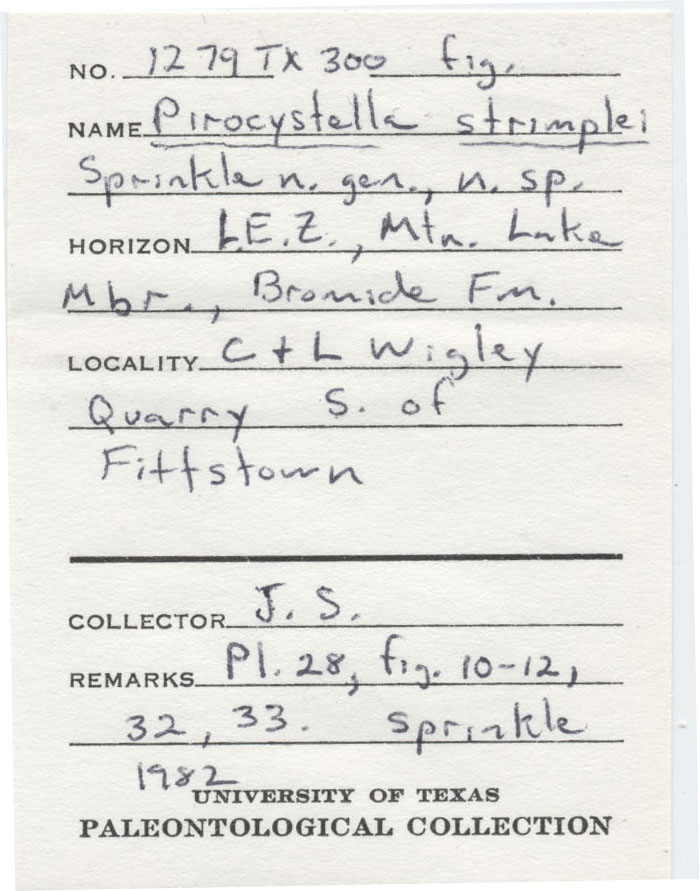 NO. 1279 TX 300 fig.
NAME Pirocystella strimplei
Sprinkle n. gen., n. sp.
HORIZON L.E.Z., Mtn. Lake
Mbr., Bromide Fm.
LOCALITY C + L Wigley
Quarry S. of
Fittstown
COLLECTOR J. S.
REMARKS Pl. 28, fig. 10-12,
32, 33. Sprinkle
1982
UNIVERSITY OF TEXAS
PALEONTOLOGICAL COLLECTION